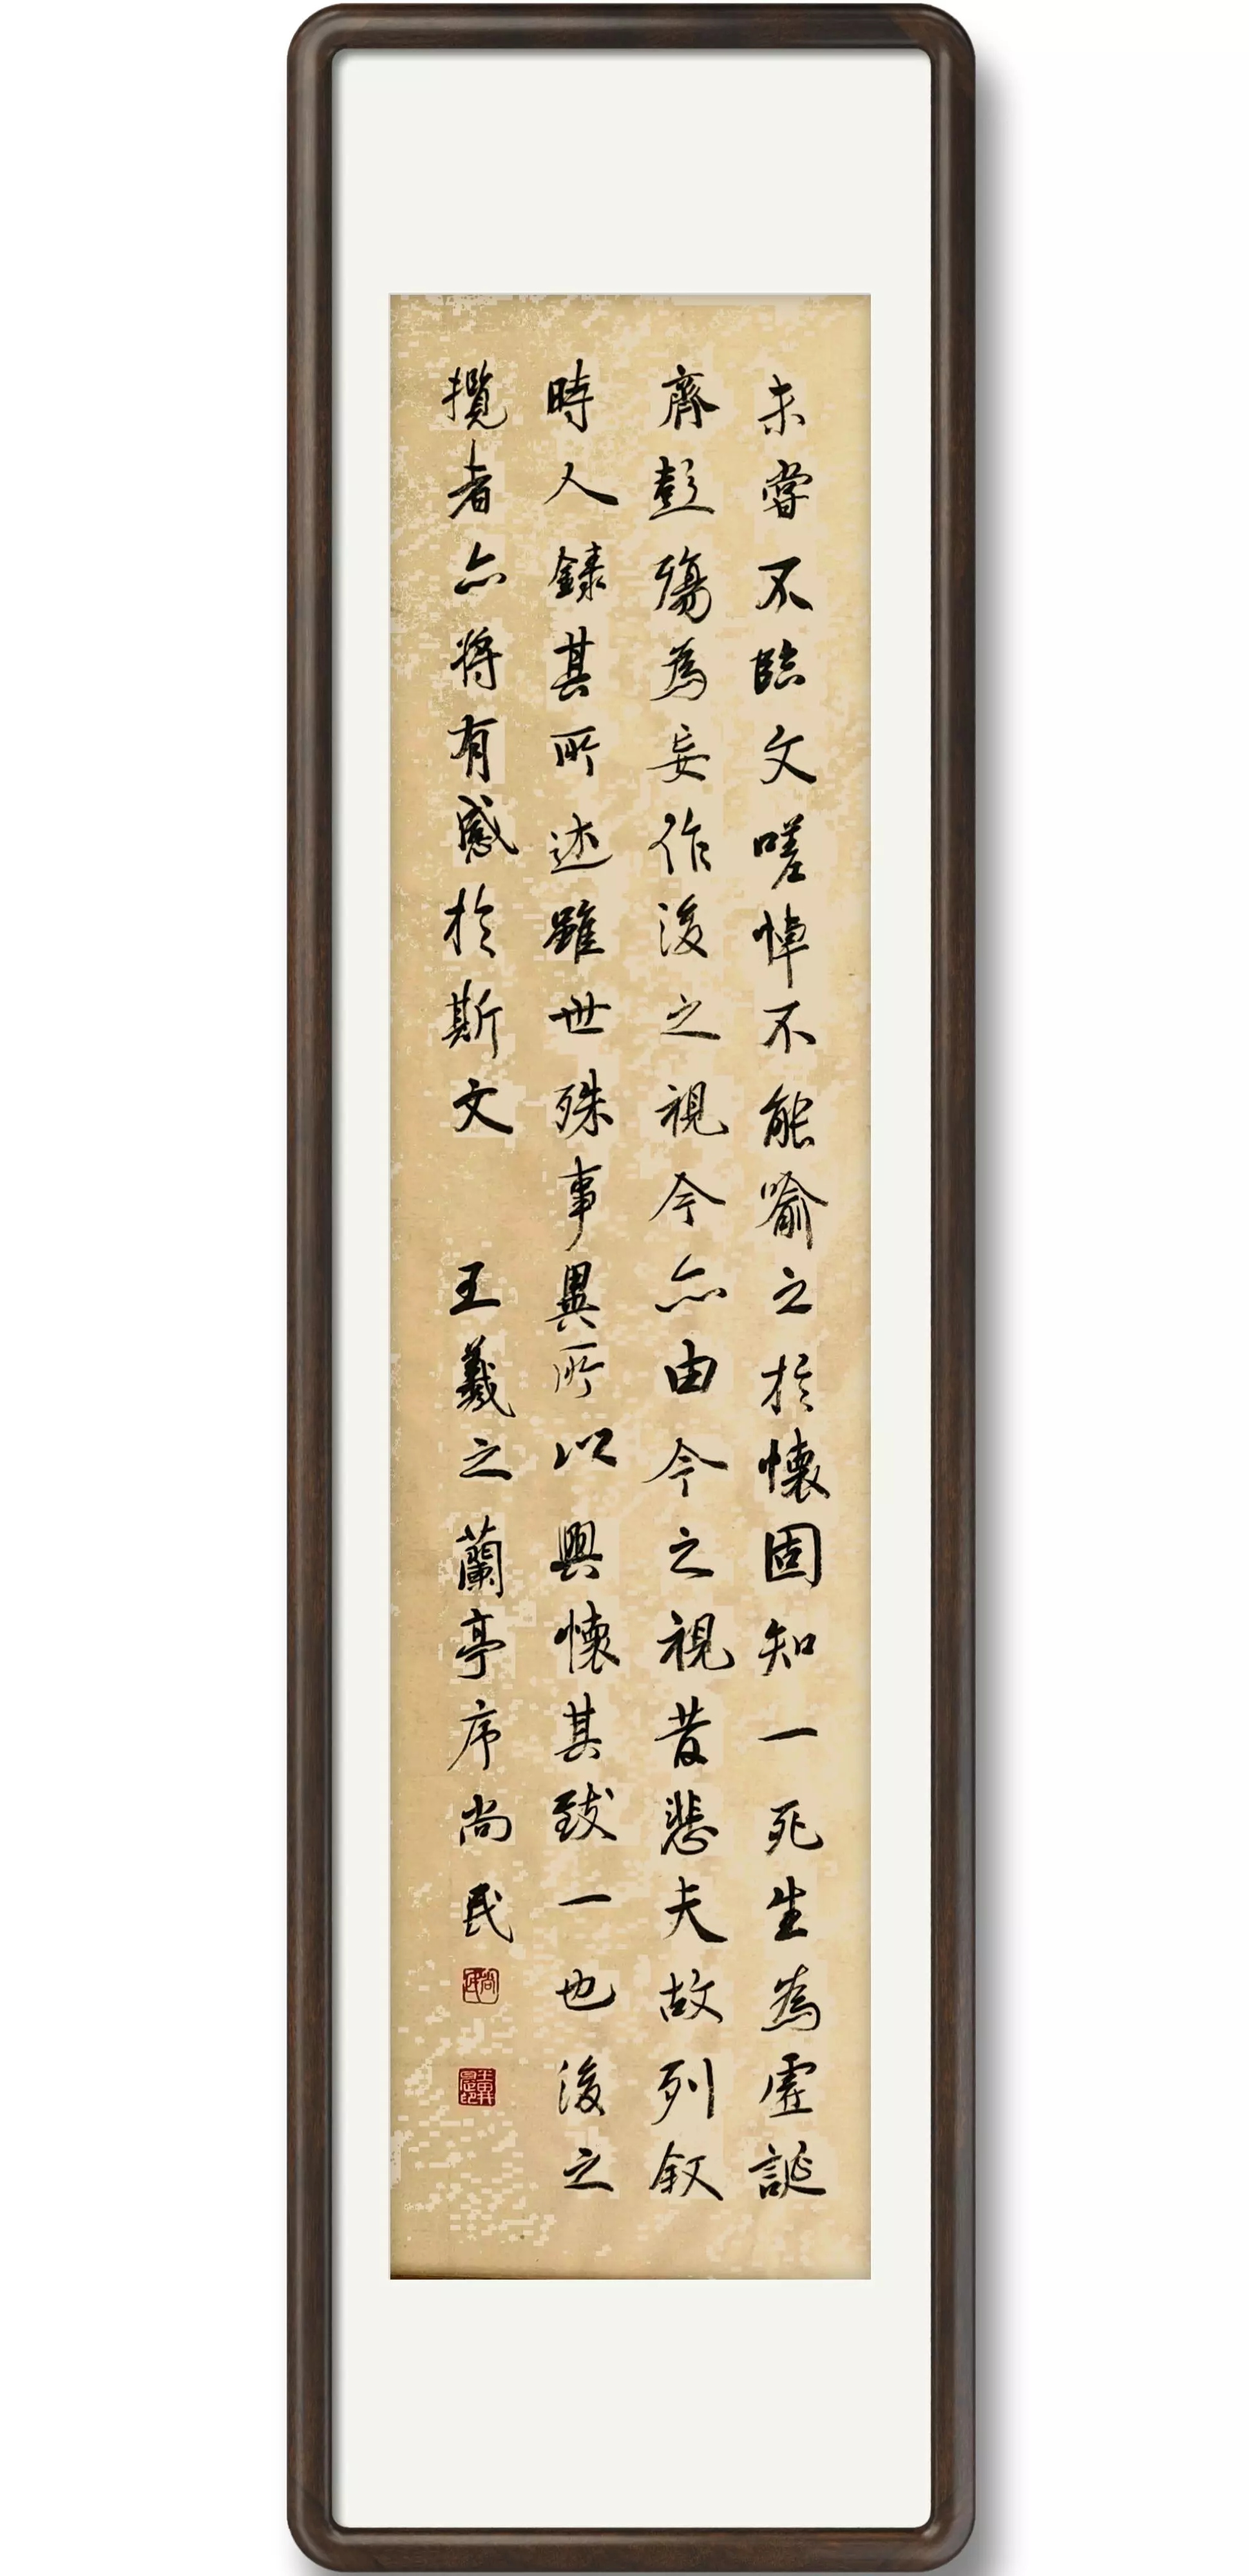 未嘗不臨文嗟悼不能喻之於懷固知一死生為虛誕
齊彭殤為妄作後之視今亦由今之視昔悲夫故列叙
時人錄其所述雖世殊事異所以興懷其致一也後之
攬者亦將有感於斯文 王羲之蘭亭序尚民
尚民